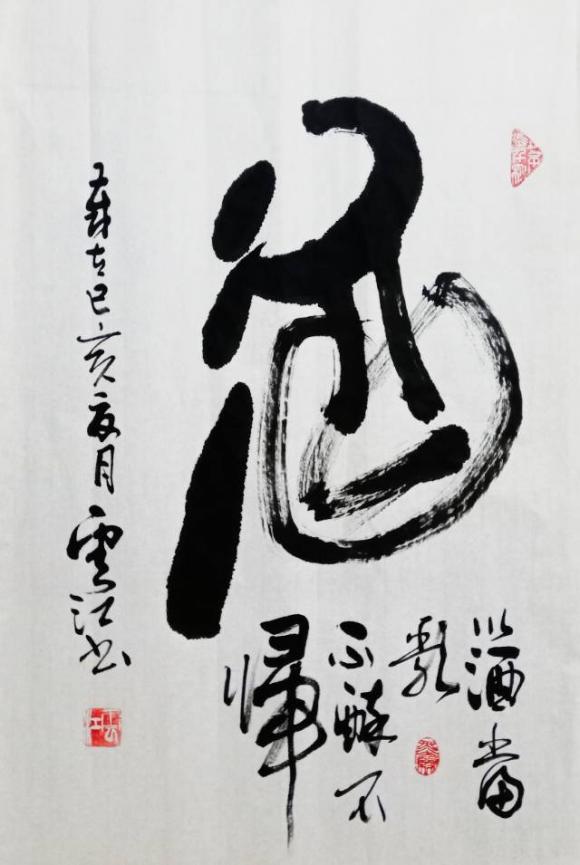 以酒當
歌
不醉不
歸
歲在己亥夏月雲江書